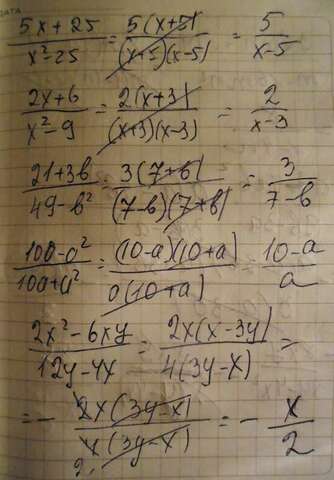 ДАТА
(5x+25)/(x²-25) = 5(x+5)/((x+5)(x-5)) = 5/(x-5)
(2x+6)/(x²-9) = 2(x+3)/((x+3)(x-3)) = 2/(x-3)
(21+3b)/(49-b²) = 3(7+b)/((7-b)(7+b)) = 3/(7-b)
(100-a²)/(10a+a²) = (10-a)(10+a)/(a(10+a)) = (10-a)/a
(2x²-6xy)/(12y-4x) = 2x(x-3y)/(4(3y-x)) =
= - 2x(3y-x)/(4(3y-x)) = - x/2
2